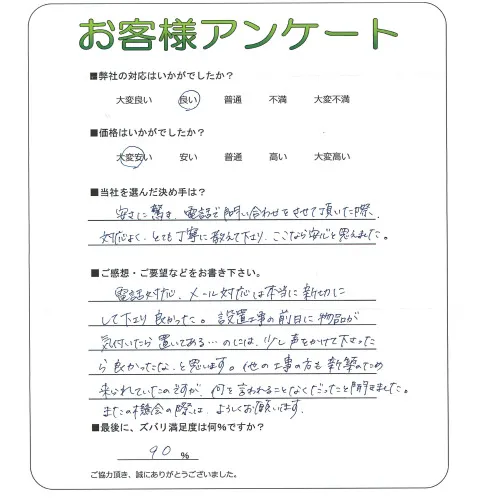 お客様アンケート
■弊社の対応はいかがでしたか？
大変良い 良い 普通 不満 大変不満
■価格はいかがでしたか？
大変安い 安い 普通 高い 大変高い
■当社を選んだ決め手は？
安さに驚き、電話で問い合わせをさせて頂いた際、
対応よく、とても丁寧に教えて下さり、ここなら安心と思えました。
■ご感想・ご要望などをお書き下さい。
電話対応、メール対応は本当に親切に
して下さり良かった。設置工事の前日に物品が
気付いたら置いてある…のには、少し声をかけて下さった
ら良かったな、と思います。他の工事の方も新築のため
来られていたのですが、何を言われることなくだったと聞きました。
またの機会の際は、よろしくお願いします。
■最後に、ズバリ満足度は何%ですか？
90 %
ご協力頂き、誠にありがとうございました。